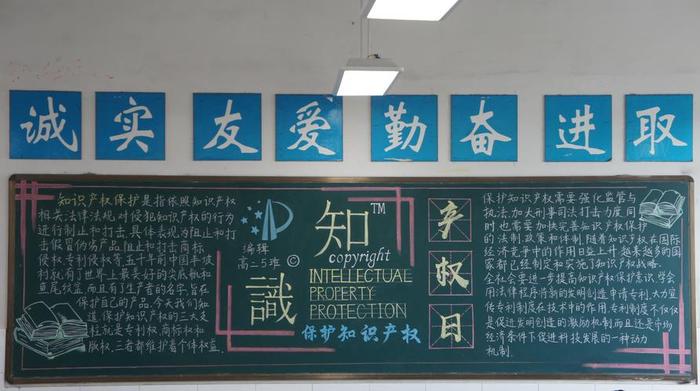 诚实 友爱 勤奋 进取
知识产权保护是指依照知识产权
相关法律法规对侵犯知识产权的行为
进行制止和打击,具体表现为阻止和打
击假冒伪劣产品,阻止和打击商标
侵权专利侵权等,五千年前中国半坡
利权,有了世界上最美好的尖底瓶和
鱼尾纹盆,而且有了生产者的名字,旨在
保护自己的产品,今天我们知
道,保护知识产权的三大支
柱就是专利权,商标权和
版权.三者都维护着个体权益.
编辑
高二5班
知識
TM
©
copyright
INTELLECTUAL
PROPERTY
PROTECTION
保护知识产权
产
权
日
保护知识产权需要强化监管与
执法,加大刑事司法打击力度,同
时也需要加快完善知识产权保护
的法制,政策和体制,随着知识产权在国际
经济竞争中的作用日益上升,越来越多的国
家都已经制定和实施了知识产权战略.
全社会要进一步提高知识产权保护意识,学会
用法律程序将新的发明创造申请专利,大力宣
传专利制度在技术中的作用,专利制度不仅仅
是促进发明创造的激励机制而且还是市场
经济条件下促进科技发展的一种动力
机制.